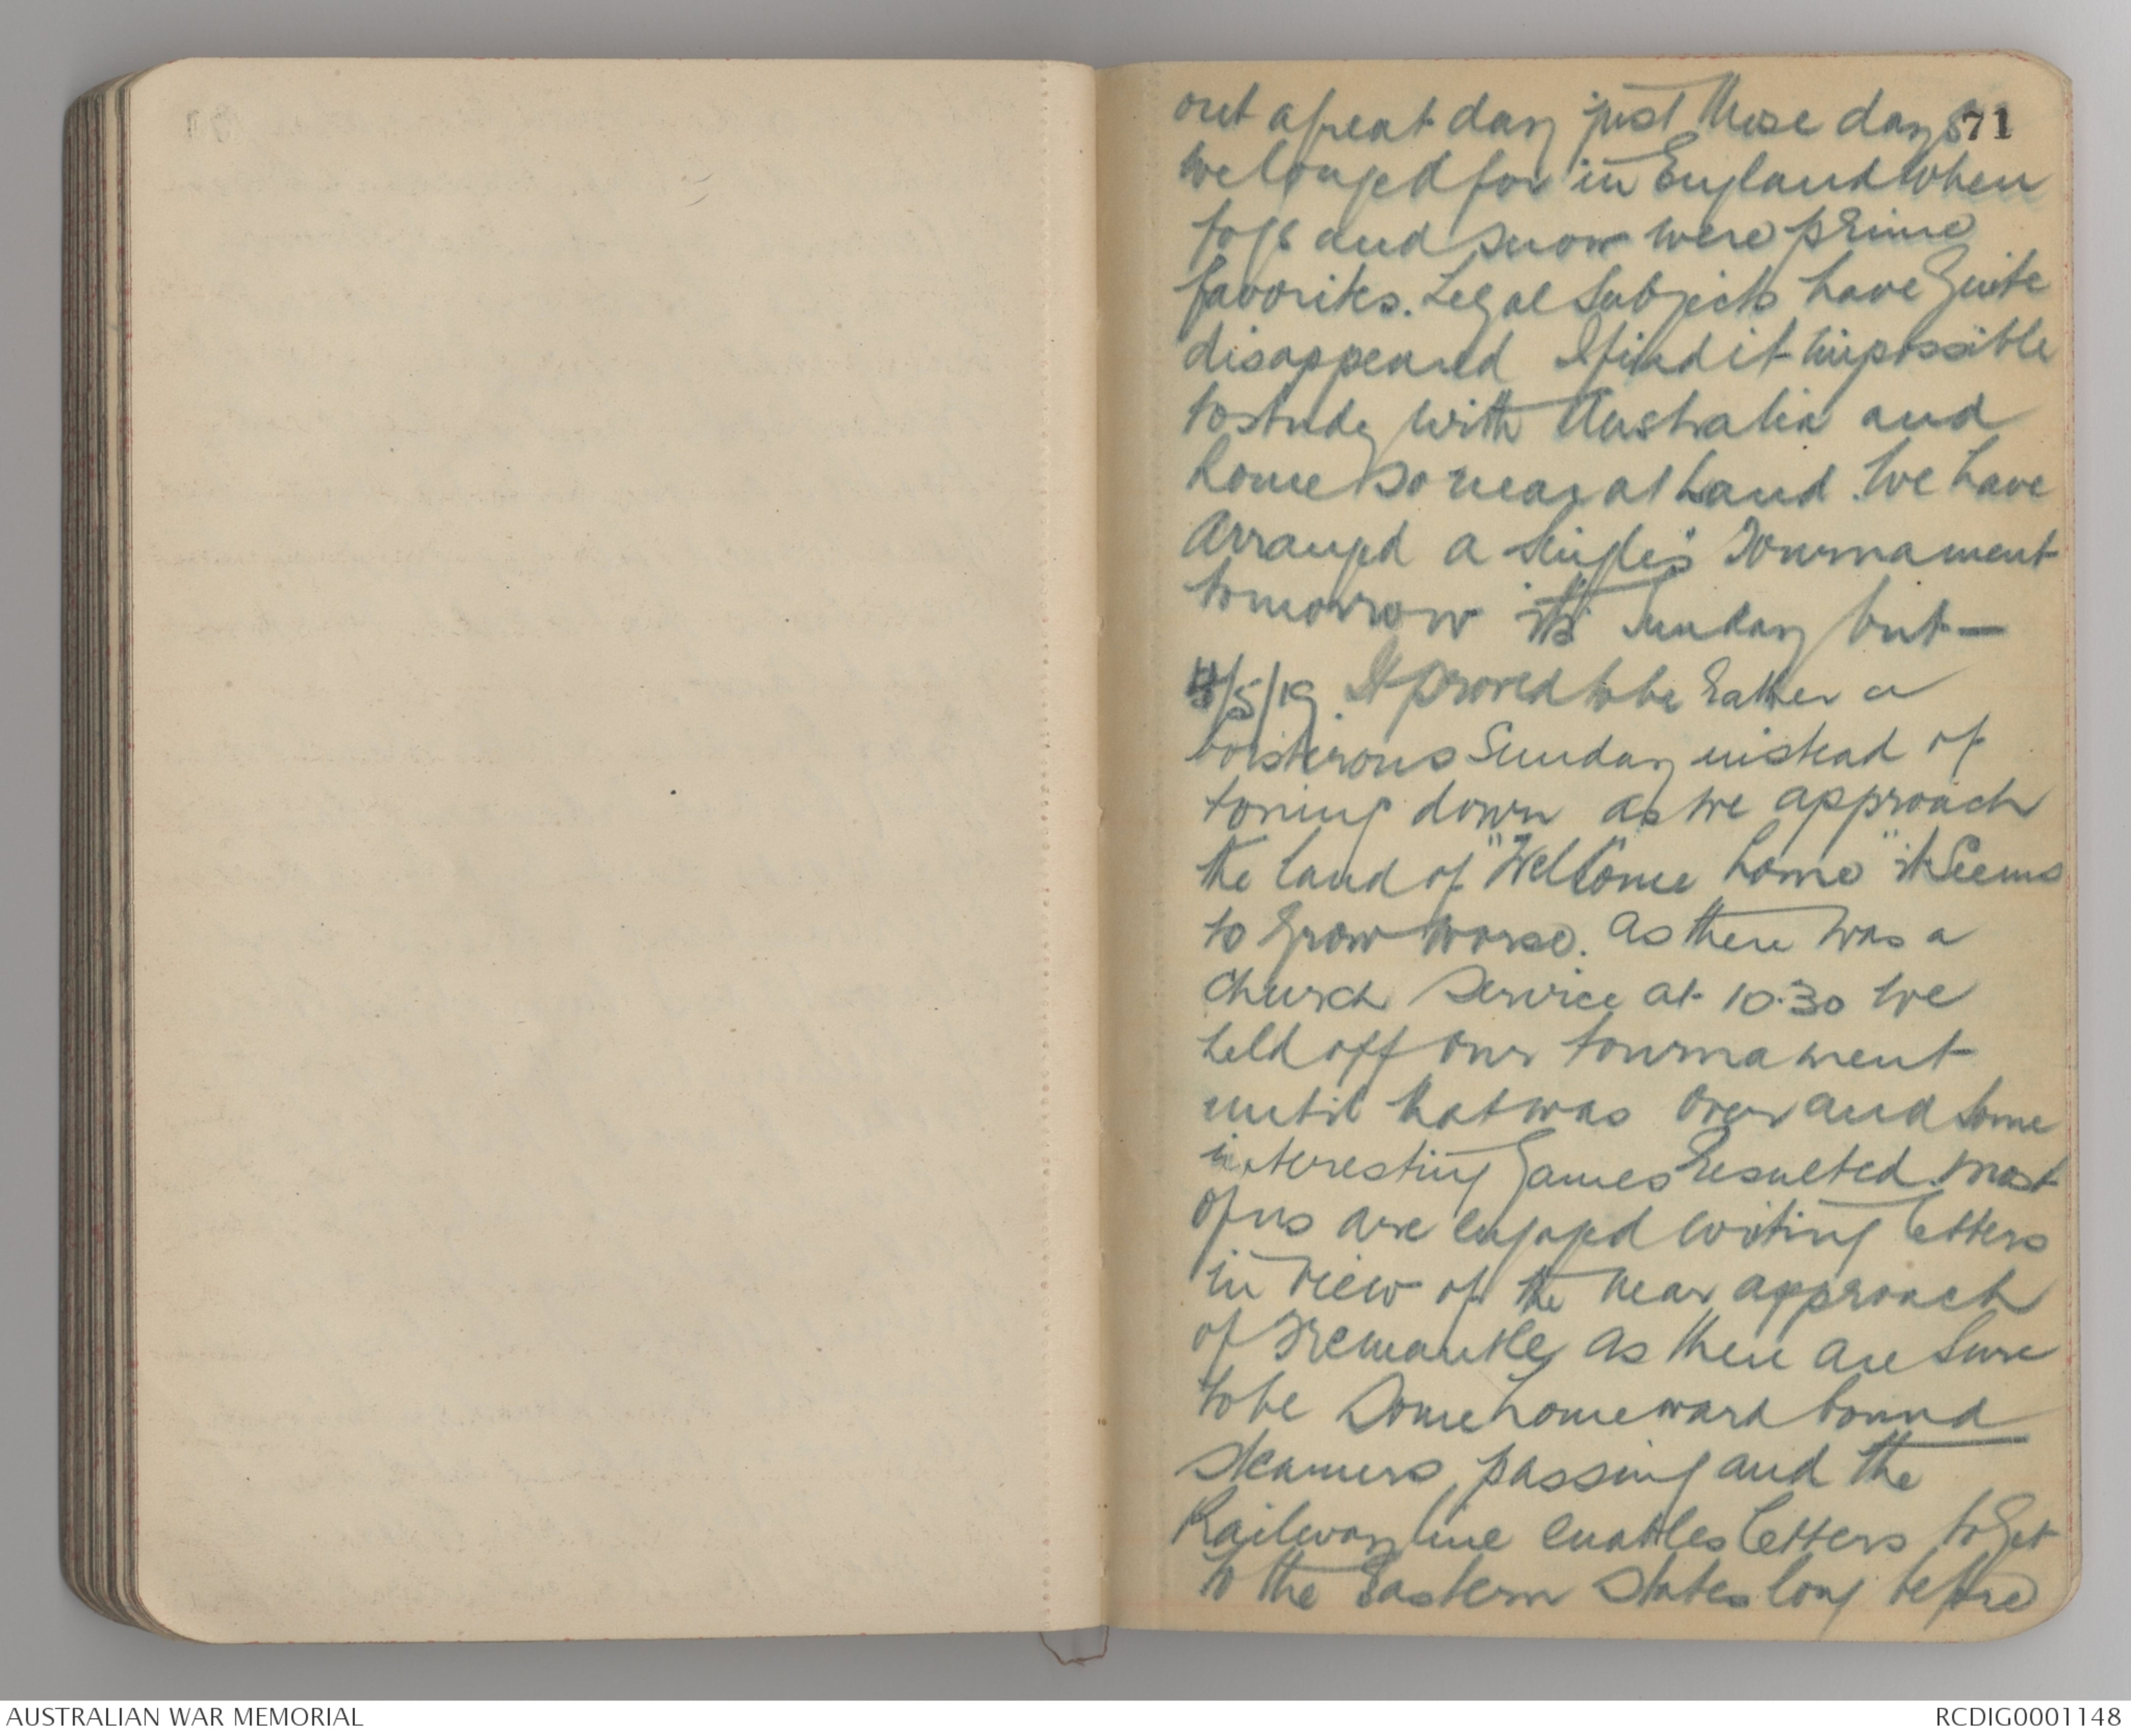 out a great day just those days
71
we longed for in England when
fogs and snow were prime
favorites. Legal Subjects have quite
disappeared I find it impossible
to study with Australia and
home so near at hand. We have
arranged a Single's Tournament
tomorrow its Sunday but —
/5/19. It proved to be rather a
boisterous Sunday instead of
toning down as we approach
the land of "Welcome home" it seems
to grow worse. As there was a
church service at 10.30 we
held off our tournament
until that was over and some
interesting games resulted. Most
of us are engaged writing letters
in view of the near approach
of Fremantle, as there are sure
to be some homeward bound
steamers passing and the
Railway line enables letters to get
to the Eastern States long before
AUSTRALIAN WAR MEMORIAL
RCDIG0001148